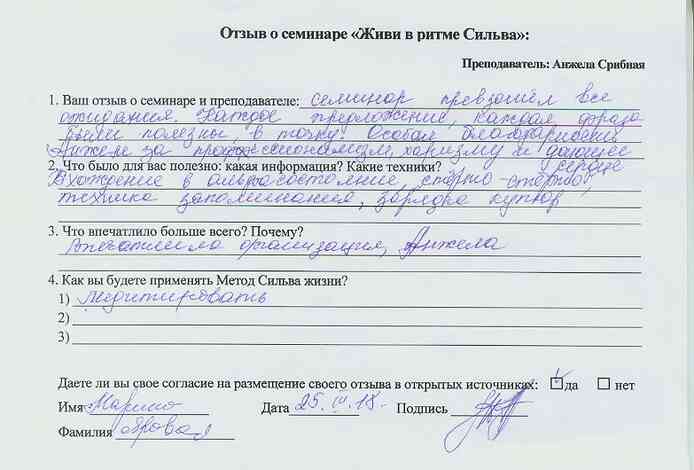 Отзыв о семинаре «Живи в ритме Сильва»:
Преподаватель: Анжела Срибная
1. Ваш отзыв о семинаре и преподавателе: семинар превзошёл все
ожидания. Каждое предложение, каждая фраза
были полезны, в точку. Особая благодарность
Анжеле за профессионализм, харизму и дающее
сердце
2. Что было для вас полезно: какая информация? Какие техники?
Вхождение в альфа состояние,
техника запоминания, зарядка купюр
3. Что впечатлило больше всего? Почему?
Впечатлила организация, Анжела
4. Как вы будете применять Метод Сильва жизни?
1) медитировать
2)
3)
Даете ли вы свое согласие на размещение своего отзыва в открытых источниках: да нет
Имя Дата 25.III.18. Подпись
Фамилия